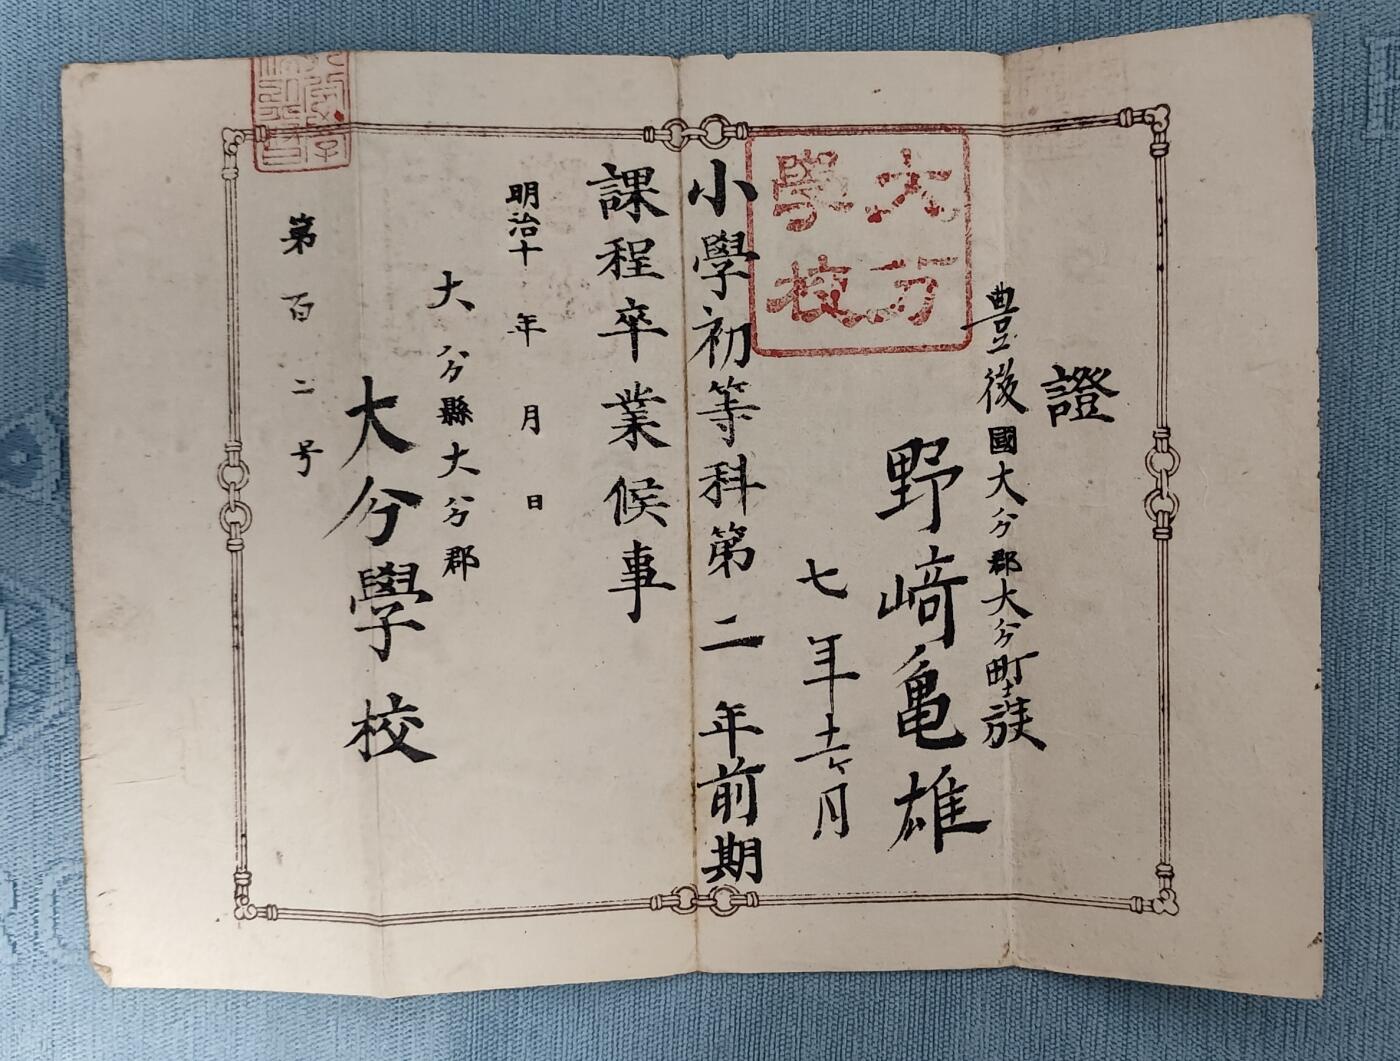 證
豊後國大分郡大分町士族
野﨑亀雄
七年十六ヶ月
大分
學校
小學初等科第二年前期
課程卒業候事
明治十年月日
大分縣大分郡
大分學校
第百二号